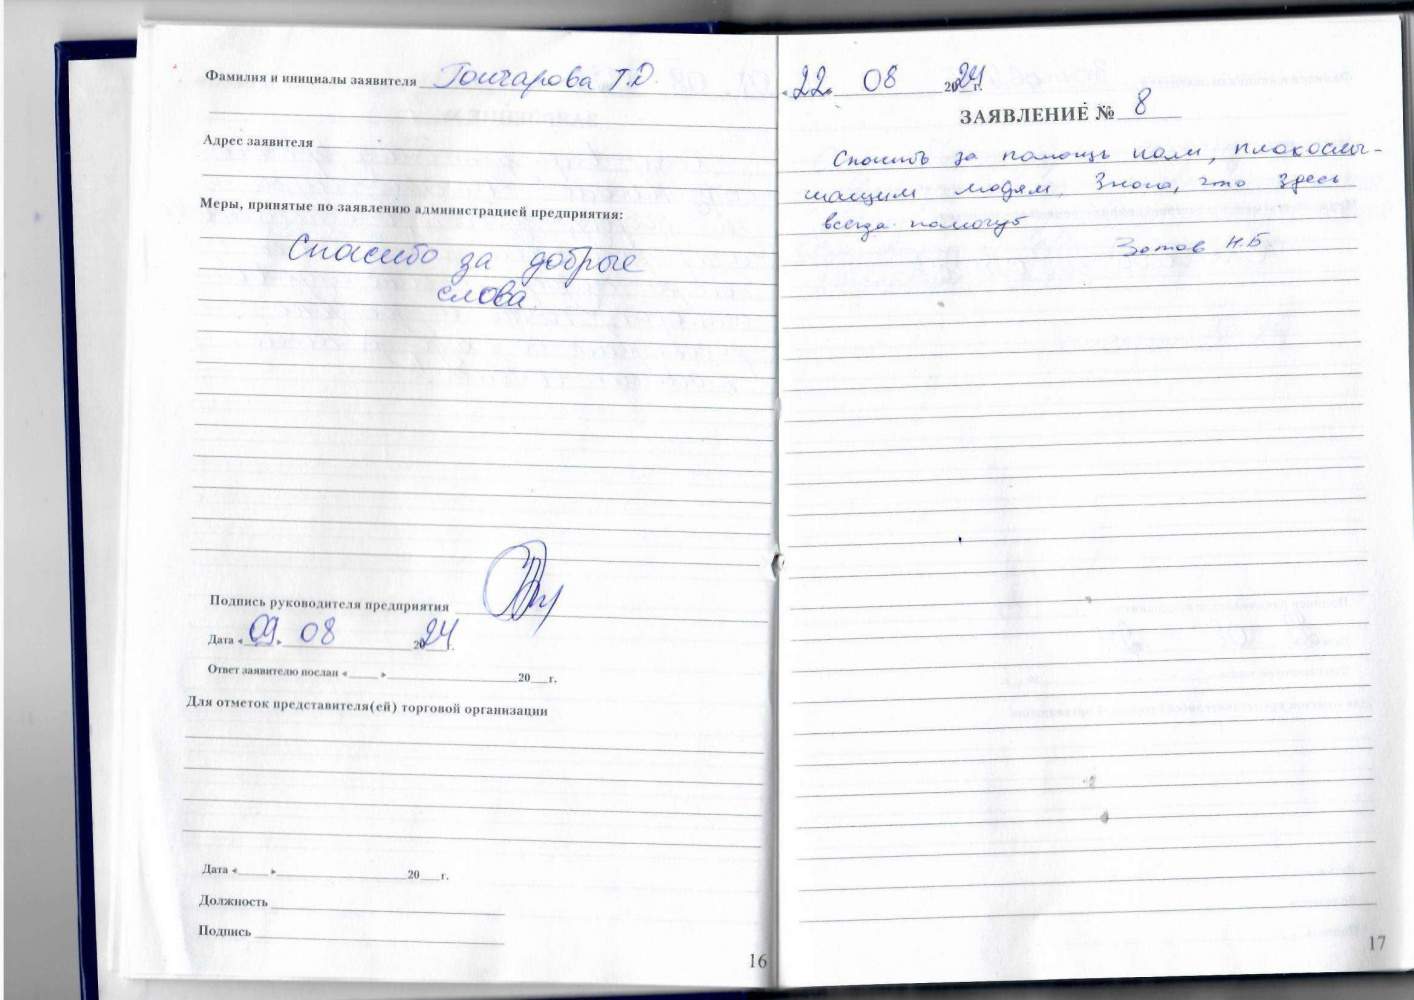 Фамилия и инициалы заявителя Гончарова Т.Д.
Адрес заявителя
Меры, принятые по заявлению администрацией предприятия:
Спасибо за добрые
слова
Подпись руководителя предприятия
Дата «09» 08 2024 г.
Ответ заявителю послан « » 20 г.
Для отметок представителя(ей) торговой организации
Дата « » 20 г.
Должность
Подпись
16
«22» 08 2024 г.
ЗАЯВЛЕНИЕ № 8
Спасибо за помощь нам, плохослы-
шащим людям. Знаю, что здесь
всегда помогут
Зотов Н.Б
17